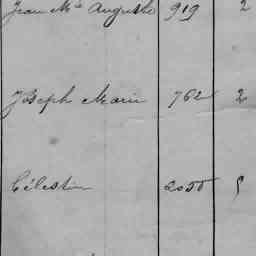 Jean Mie Auguste 919 2
Joseph Marie 762 2
Célestin 2050